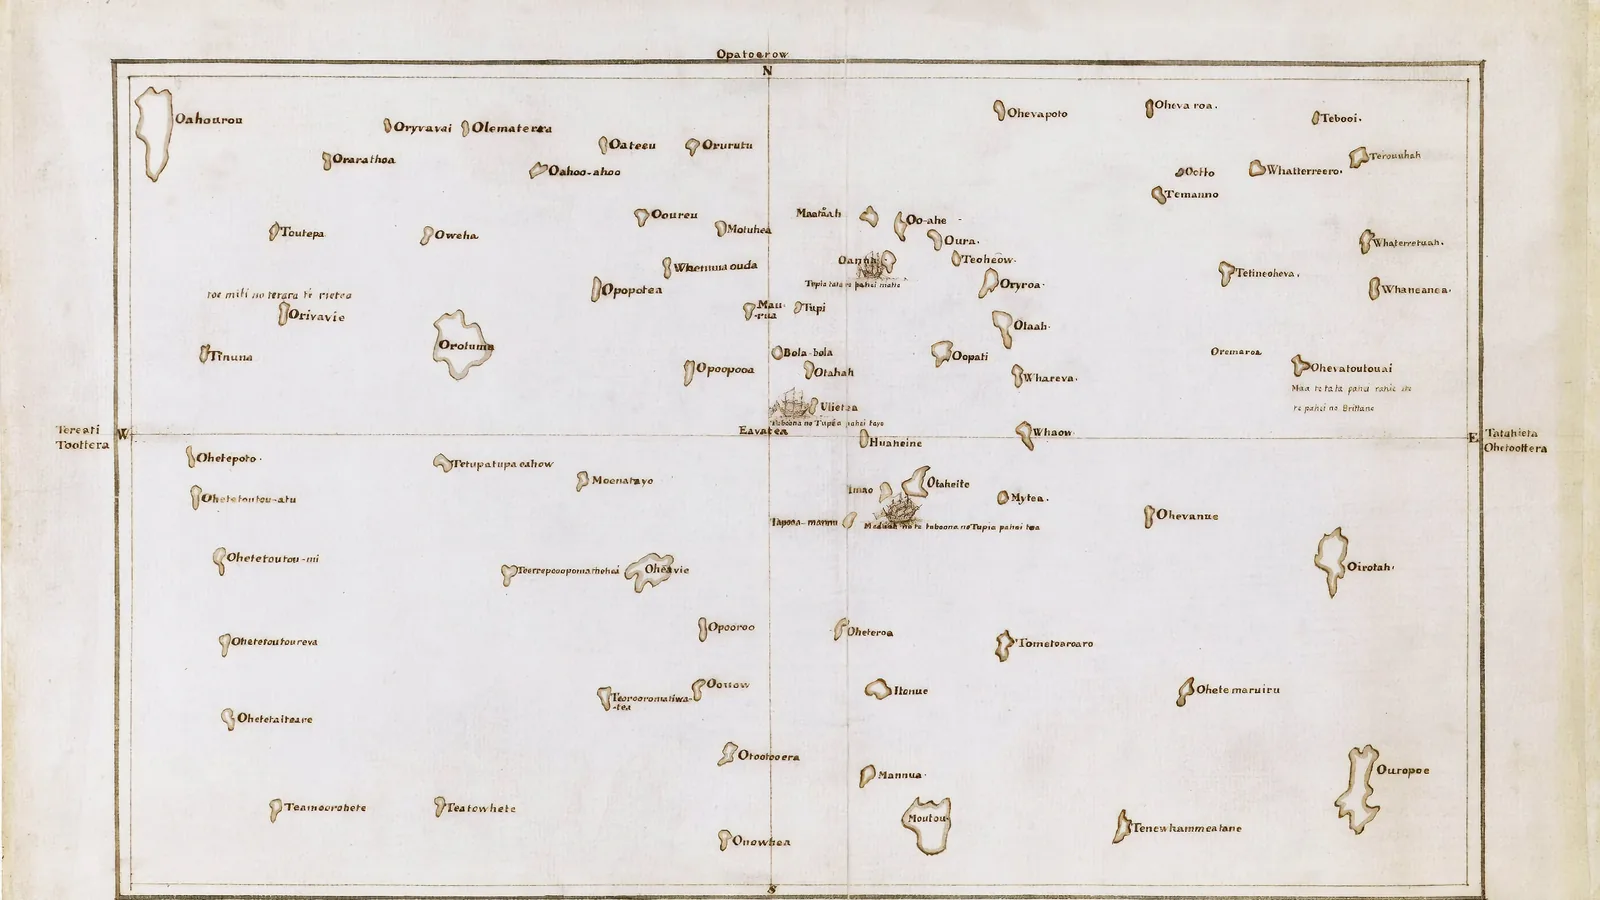 Opatoerow
N
Oahourou
Oryvavai
Olematerra
Oateeu
Orurutu
Ohevapoto
Oheva roa.
Tebooi.
Orarathoa
Oahoo-ahoo
Ootto
Whatterreero.
Terouhah
Temanno
Toutepa
Oweha
Ooureu
Motuhea
Maatāah
Oo-ahe
Oura.
Whaterretuah.
Whennua ouda
Oanna
Teoheow.
Tetineoheva.
Whaneanea.
toe miti no terara te rietea
Opopotea
Tupia tata re pahei matte
Oryroa.
Orivavie
Mau-
-rua
Tupi
Olaah.
Tinuna
Orotuma
Bola-bola
Oopati
Oremaroa
Opoopooa
Otahah
Whareva.
Ohevatoutouai
Maa te tata pahei rahie ete
te pahei no Brittane
Ulietea
Tuboona no Tupia pahei tayo
Tereati
Toottera
W
Eavatea
Huaheine
Whaow
E
Tatahieta
Ohetoottera
Ohetepoto.
Tetupatupa eahow
Moenatayo
Imao
Otaheite
Mytea.
Ohetetoutou-atu
Tapooa-mannu
Medua no te tuboona no Tupia pahei toa
Ohevanue
Ohetetoutou-mi
Teerrepooopomathehei
Oheavie
Oirotah.
Ohetetoutoureva
Opooroo
Oheteroa
Tometoaroaro
Teorooromatiwa-
-tea
Oouow
Itonue
Ohete maruiru
Ohetetaiteare
Otootooera
Mannua.
Ouropoe
Teamoorohete
Teatowhete
Moutou
Tenewhammeatane
Onowhea
S